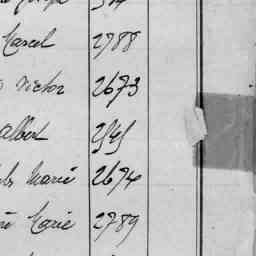 Marcel 2788
Victor 2673
Albert 2545
Marie 2674
Marie 2789